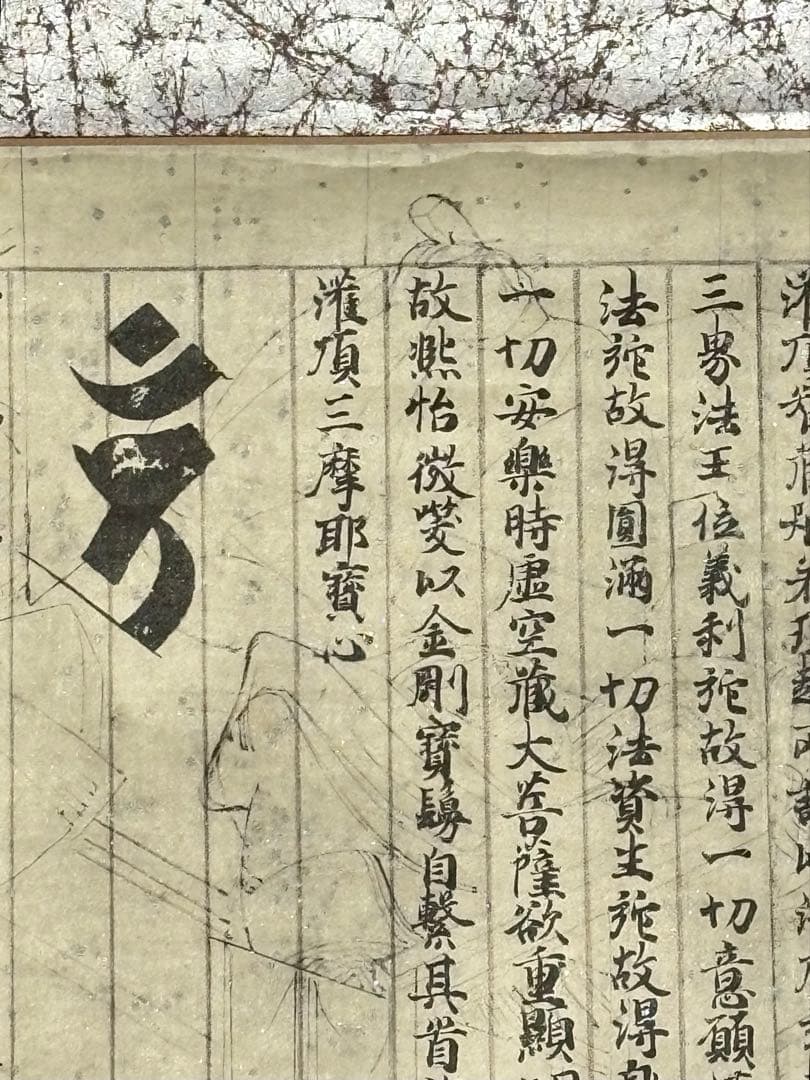 灌頂智藏般若理趣所謂以灌頂
三界法王位義利施故得一切意願
法施故得圓滿一切法資生施故得
一切安樂時虛空藏大菩薩欲重顯
故熙怡微笑以金剛寶鬘自繫其首
灌頂三摩耶寶心